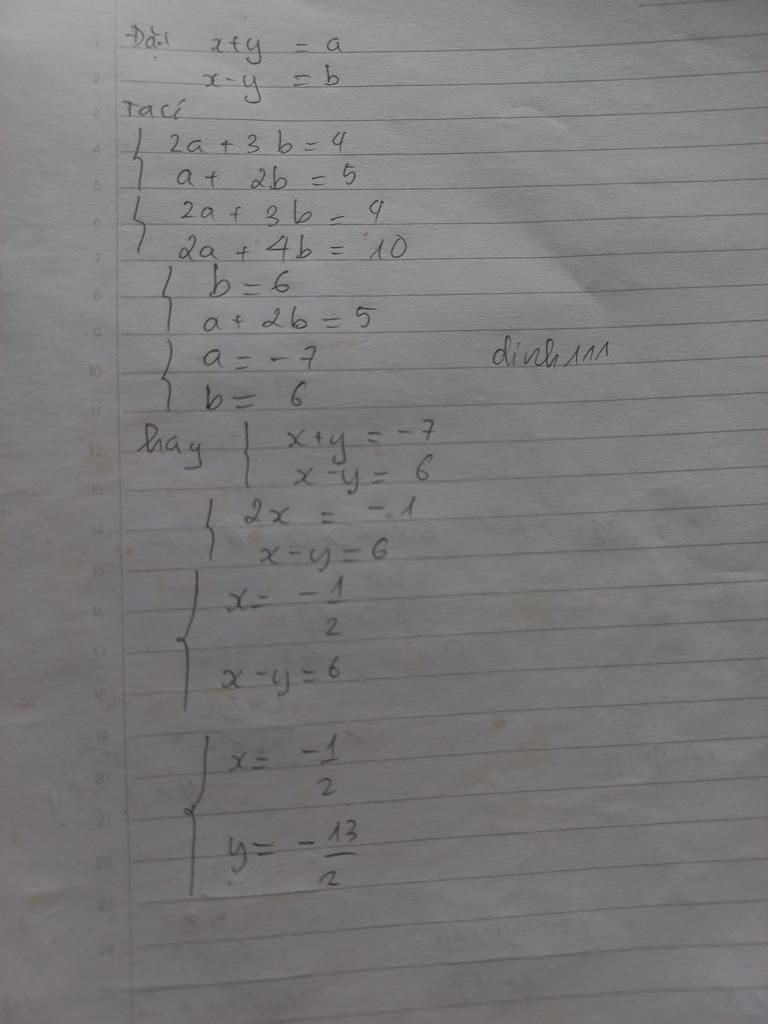 Đặt x+y = a
x-y = b
Ta có
2a + 3b = 4
a + 2b = 5
2a + 3b = 4
2a + 4b = 10
b = 6
a + 2b = 5
a = -7
dinh111
b = 6
hay x+y = -7
x-y = 6
2x = -1
x-y = 6
x = -1/2
x-y = 6
x = -1/2
y = -13/2